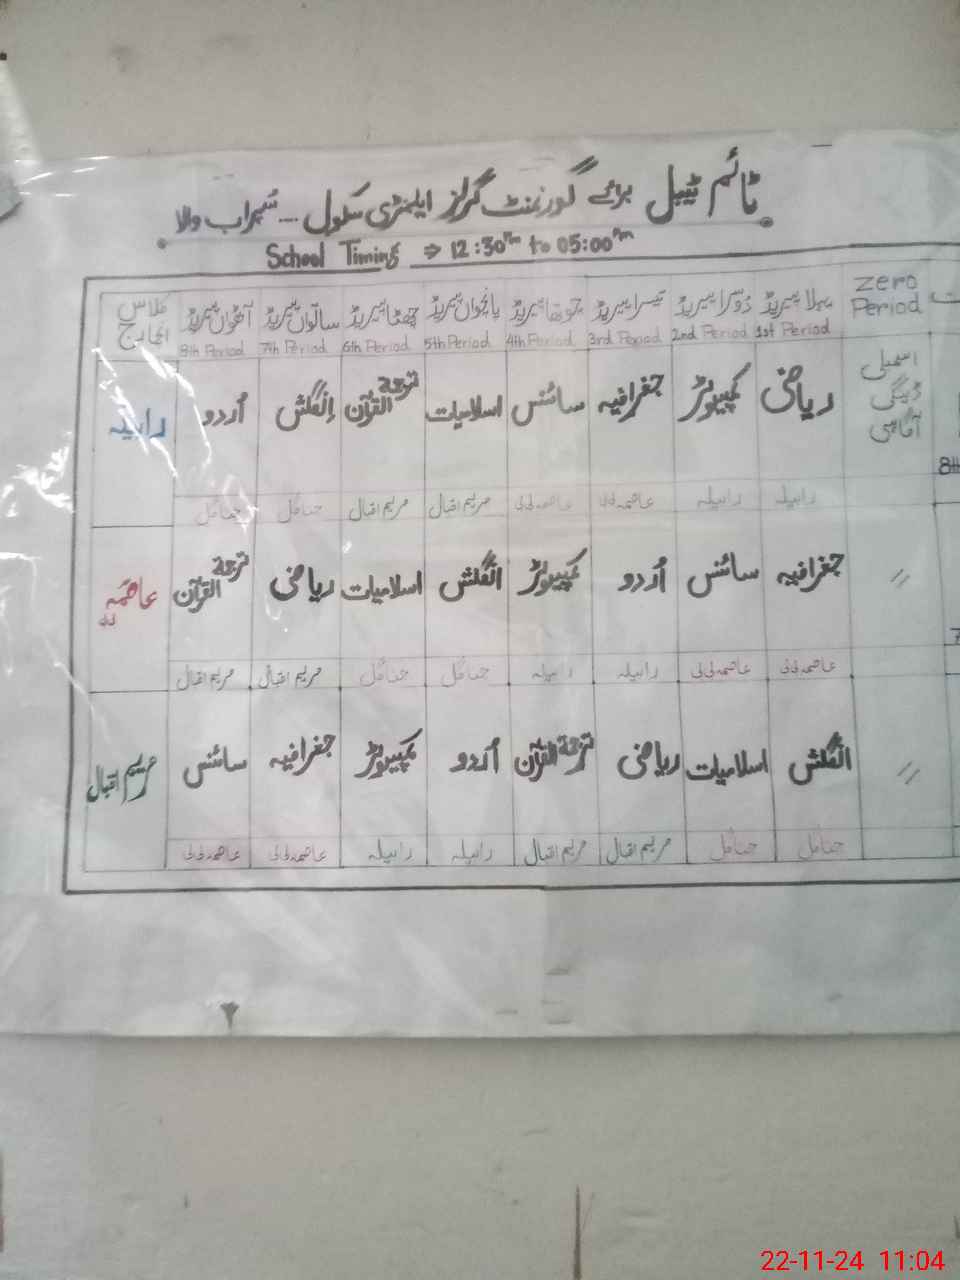 ٹائم ٹیبل برائے گورنمنٹ گرلز ایلیمنٹری سکول ... سہراب والا
School Timing ⇒ 12:30Pm to 05:00Pm
zero Period پہلا پیریڈ دوسرا پیریڈ تیسرا پیریڈ چوتھا پیریڈ پانچواں پیریڈ چھٹا پیریڈ ساتواں پیریڈ آٹھواں پیریڈ کلاس انچارج
1st Period 2nd Period 3rd Period 4th Period 5th Period 6th Period 7th Period 8th Period
8th اسمبلی ڈینگی آگاہی ریاضی کمپیوٹر جغرافیہ سائنس اسلامیات ترجمۃ القرآن انگلش اُردو رابیلہ
رابیلہ رابیلہ عاصمہ بی بی عاصمہ بی بی مریم اقبال مریم اقبال حنا گل حنا گل
7 〃 جغرافیہ سائنس اُردو کمپیوٹر انگلش اسلامیات ریاضی ترجمۃ القرآن عاصمہ بی بی
عاصمہ بی بی عاصمہ بی بی رابیلہ رابیلہ حنا گل حنا گل مریم اقبال مریم اقبال
〃 انگلش اسلامیات ریاضی ترجمۃ القرآن اُردو کمپیوٹر جغرافیہ سائنس مریم اقبال
حنا گل حنا گل مریم اقبال مریم اقبال رابیلہ رابیلہ عاصمہ بی بی عاصمہ بی بی
22-11-24 11:04